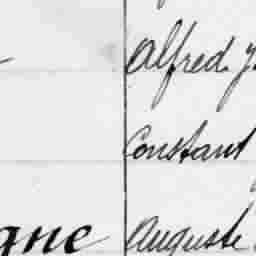 Alfred
Constant
gne Auguste